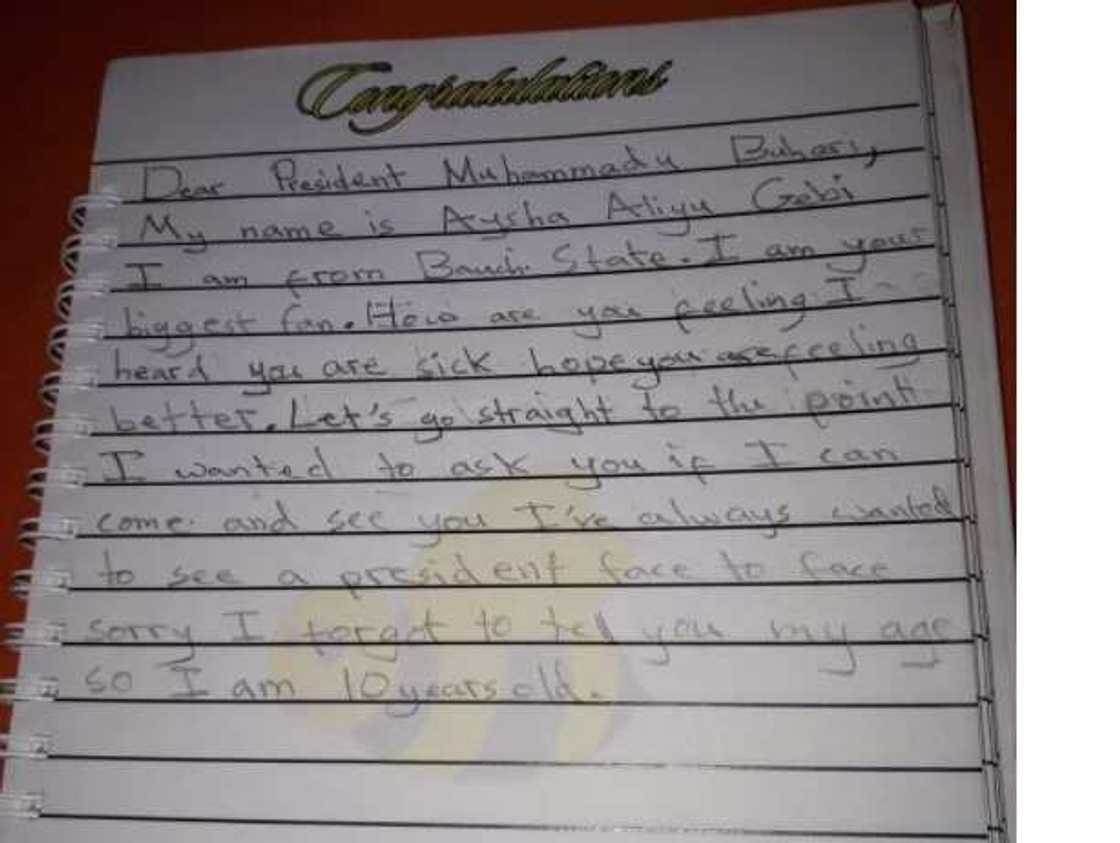 Congratulations
Dear President Muhammadu Buhari,
My name is Aysha Aliyu Gebi
I am from Bauchi State. I am your
biggest fan. How are you feeling I
heard you are sick hope you are feeling
better. Let's go straight to the point
I wanted to ask you if I can
come and see you I've always wanted
to see a president face to face
sorry I forgot to tell you my age
so I am 10 years old.